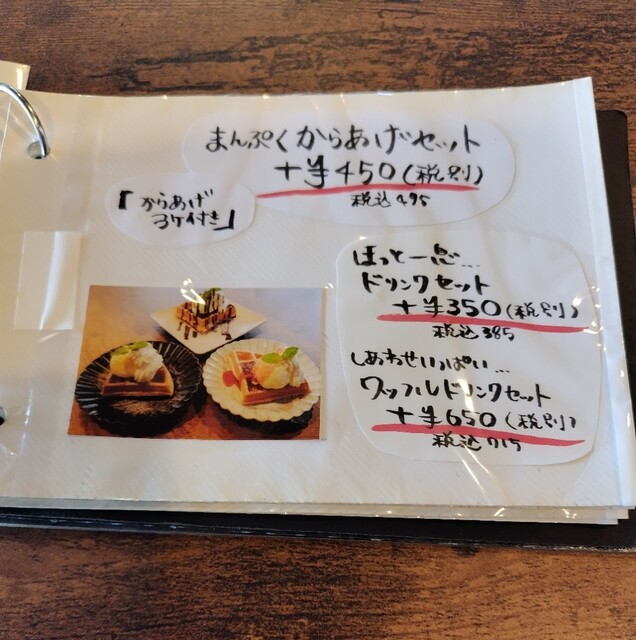 まんぷくからあげセット
+¥450(税別)
税込495
「からあげ
3ケ付き」
ほっと一息...
ドリンクセット
+¥350(税別)
税込385
しあわせいっぱい...
ワッフルドリンクセット
+¥650(税別)
税込715